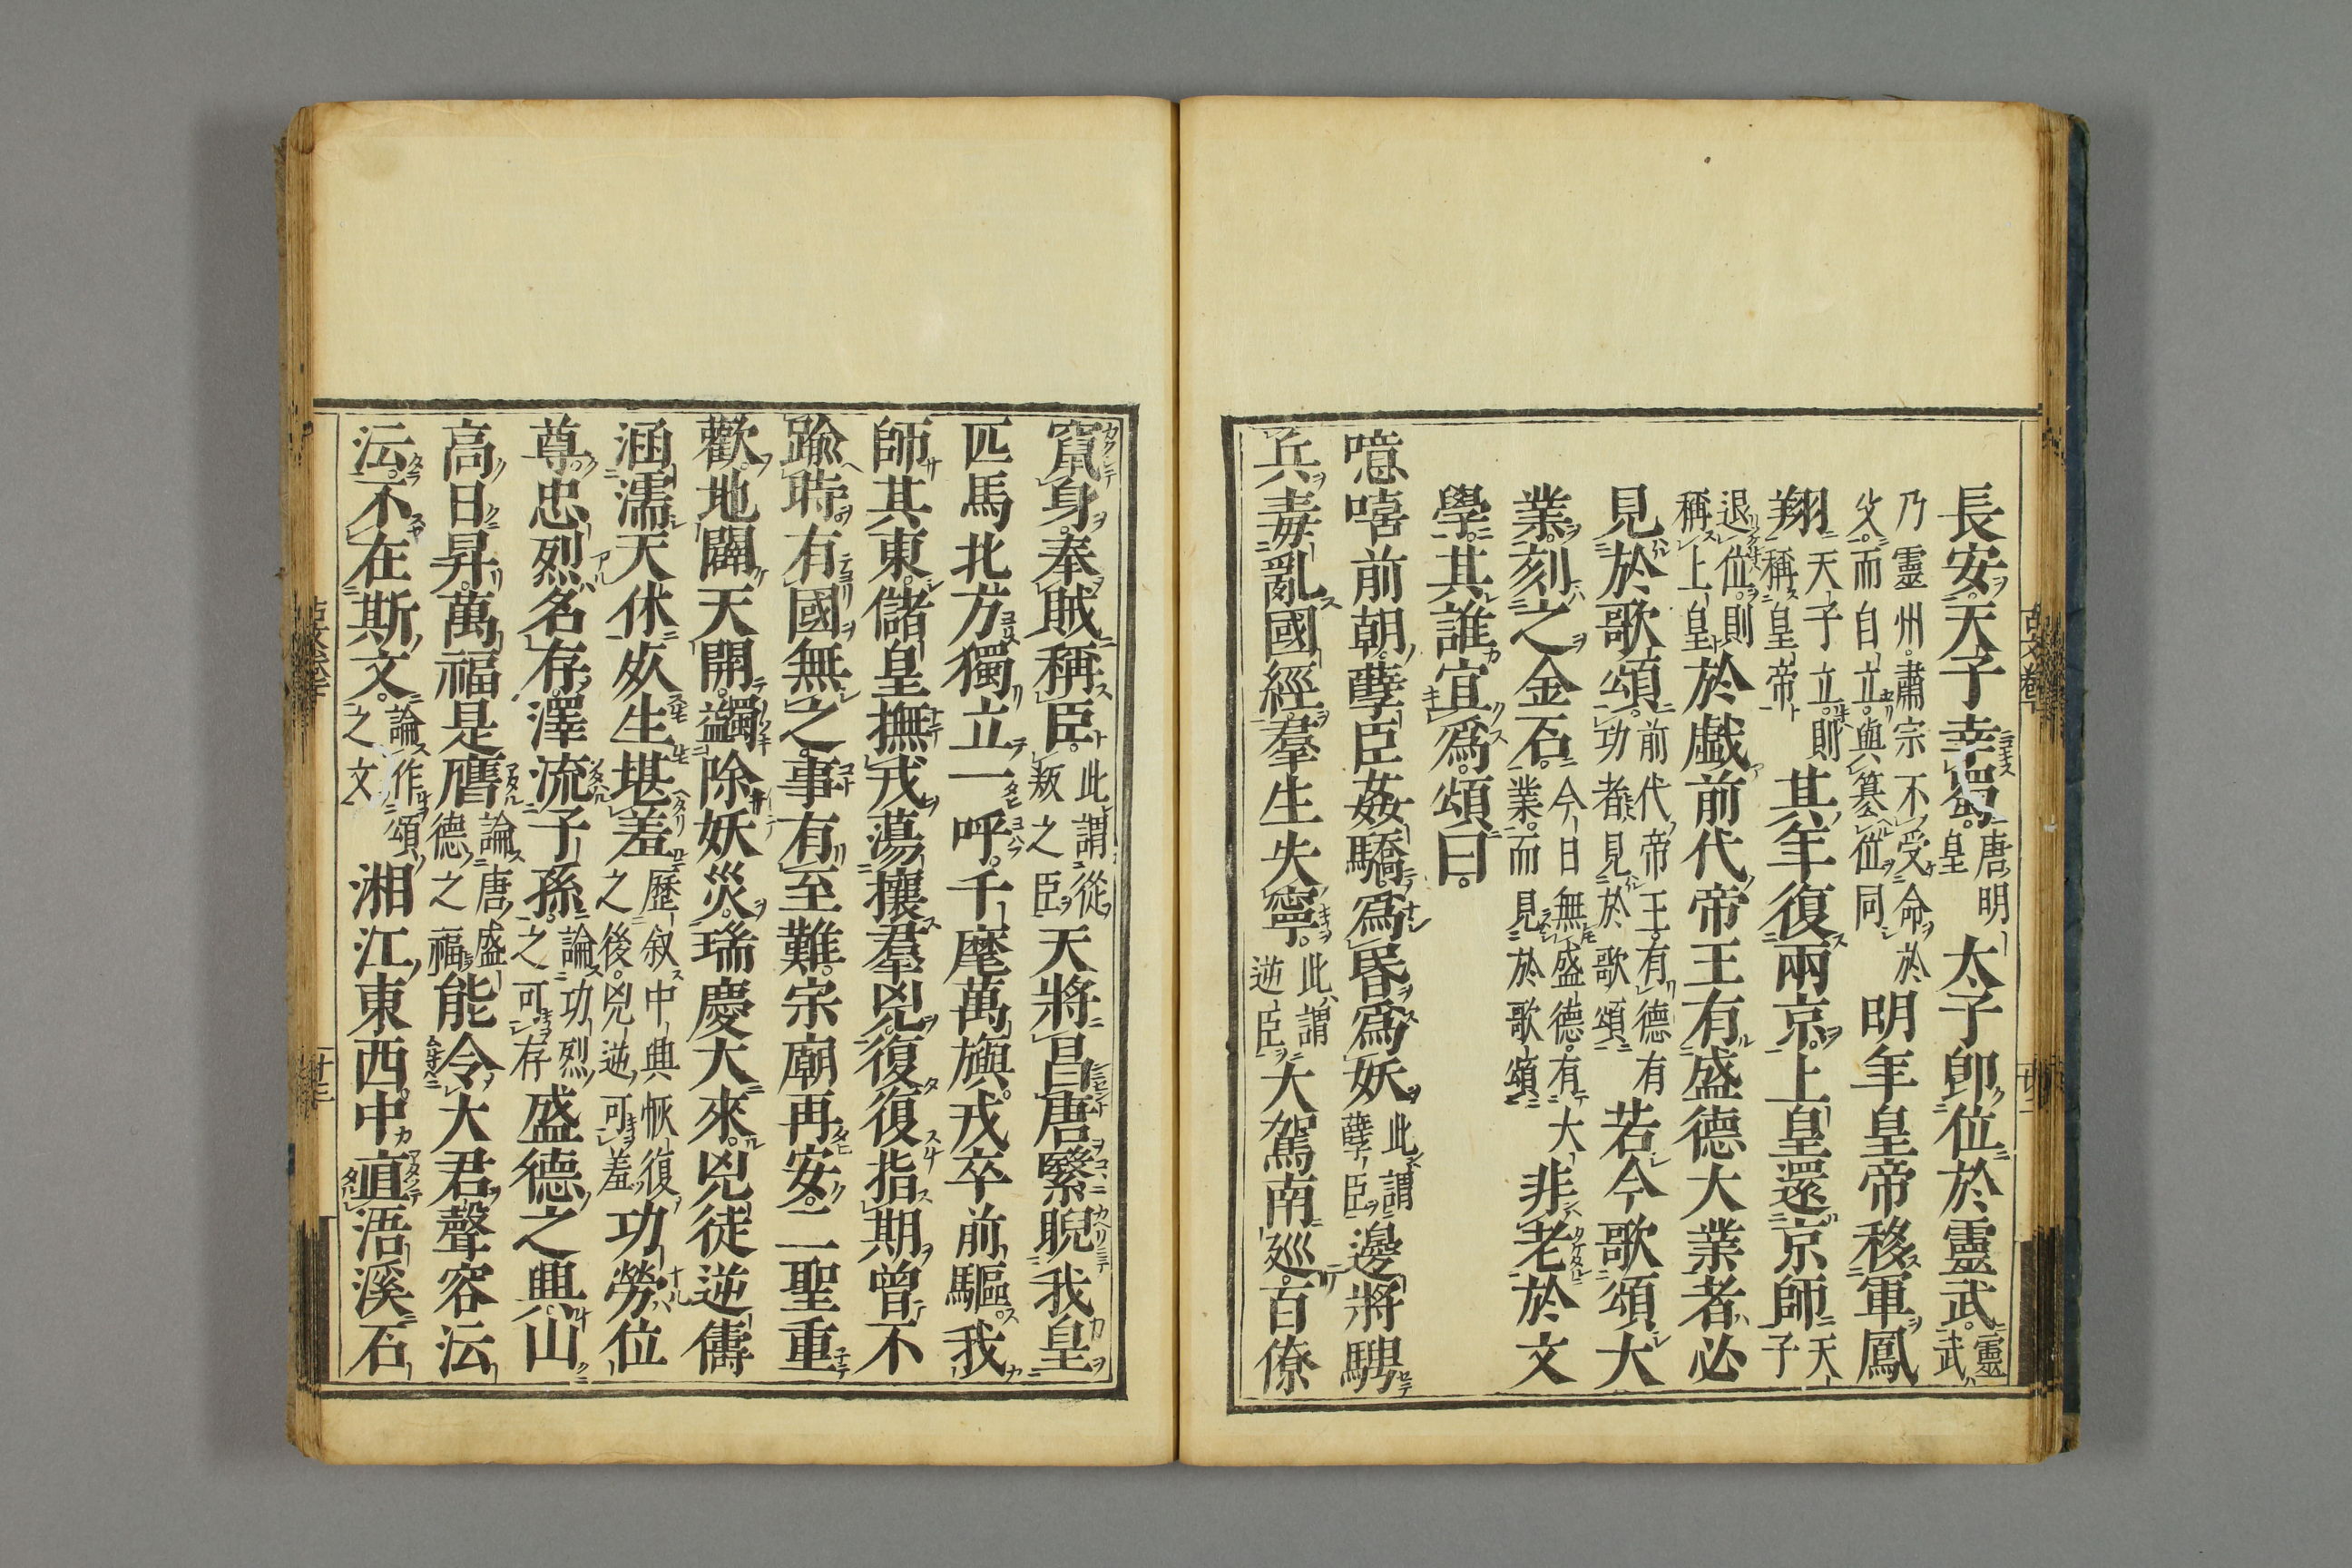 長安天子幸蜀唐明皇太子卽位於靈武靈武
乃靈州肅宗不受命於父而自立與簒位同明年皇帝移軍鳳
翔天子立則稱皇帝其年復兩京上皇還京師天子
退位則稱上皇於戯前代帝王有盛德大業者必
見於歌頌前代帝王有德有功者見於歌頌若今歌頌大
業刻之金石今日無盛德有大業而見於歌頌非老於文
學其誰宜爲頌曰
噫嘻前朝孽臣姦驕爲昬爲妖此謂孽臣邊將騁
兵毒亂國經羣生失寧此謂逆臣大駕南廵百僚
竄身奉賊稱臣此謂從叛之臣天將昌唐繄睨我皇
匹馬北方獨立一呼千麾萬旟戎卒前驅我
師其東儲皇撫戎蕩攘羣兇復復指期曾不
踰時有國無之事有至難宗廟再安二聖重
歡地闢天開蠲除妖災瑞慶大來兇徒逆儔
涵濡天休㱙生堪羞歷叙中興恢復之後兇逆可羞功勞位
尊忠烈名存澤流子孫論功烈之可存盛德之興山
高日昇萬福是膺論唐盛德之福能令大君聲容沄
沄不在斯文論作頌之文湘江東西中直浯溪石